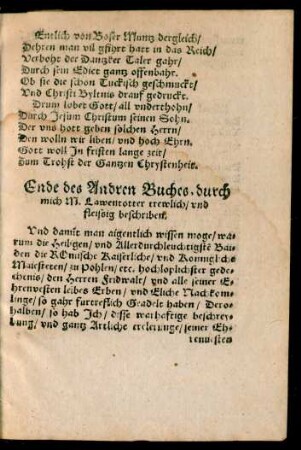 Entlich von Boser Muntz dergleich/
Dehren man vil gfihrt hatt in das Reich/
Verbohe der Dantzker Taler gahr/
Durch sein Edict gantz offenbahr.
Ob sie die schon Tuckisch geschmuckt/
Vnd Christi Byltnis drauf gedruckt.
Drum lobet Gott/ all vnderthohn/
Durch Jesum Christum seinen Sohn.
Der vns hott geben solchen Herrn/
Den wolln wir liben/ vnd hoch Ehrn.
Gott woll In fristen lange zeit/
Zum Trohst der Gantzen Chrystenheit.
Ende des Andren Buches, durch
mich M. Lawentotter trewlich/ vnd
fleisig beschriben.
Vnd damit man aigentlich wissen moge/ wa-
rum die Heiligen/ vnd Allerdurchleuchtigste Bai-
den die ROmische Kaiserliche/ vnd Konnigliche
Maiesteten/ zu Pohlen/ etc. hochloplichster gede-
chtenis/ den Herren Fridwalt/ vnd alle seiner E-
hrenvesten leibes Erben/ vnd Eliche Nachkom-
linge/ so gahr furtreflich Geadelt haben/ Dero-
halben/ so hab Ich/ disse warhaftige beschrey-
bung/ vnd gantz Artliche erclerunge/ seiner Eh-
renuesten